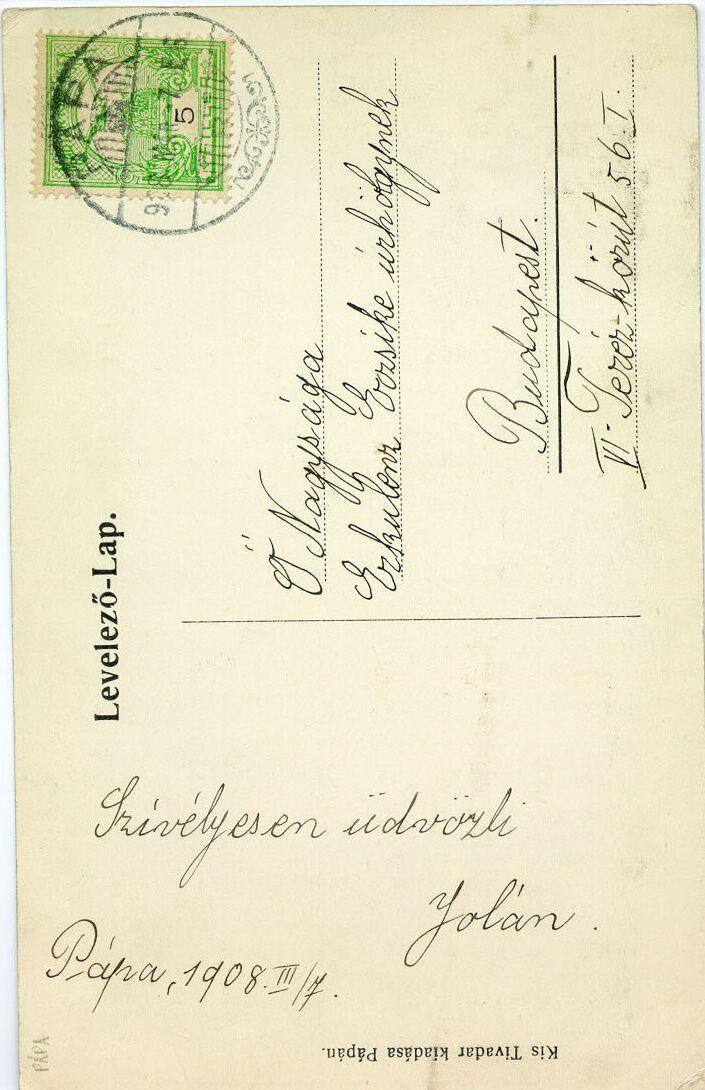 Levelező-Lap.
PÁPA
908
5
FILLER
Ő Nagysága
Erkulenz Erzsike úrhölgynek
Budapest.
VI. Teréz-körút 56. I.
Szívélyesen üdvözli
Jolán.
Pápa, 1908. III/7.
Kis Tivadar kiadása Pápán.
PÁPA